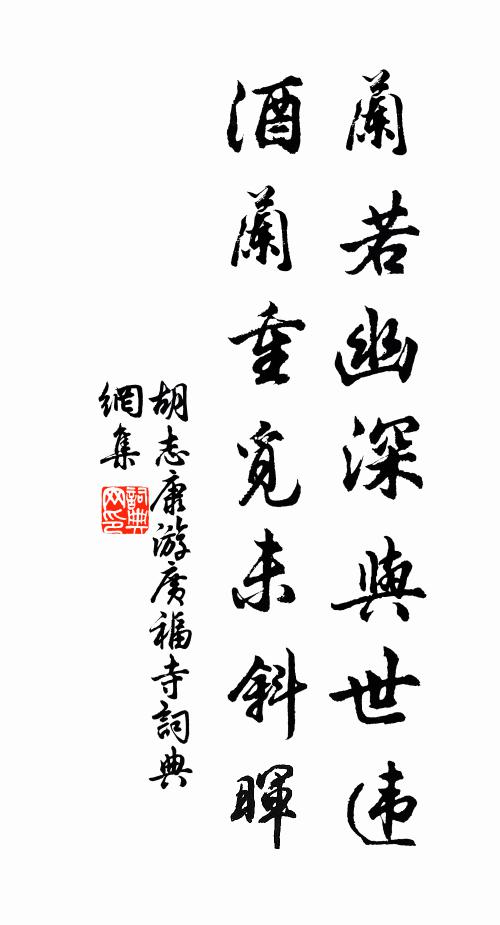 蘭若幽深與世違
酒蘭重覓未斜暉
胡志康游廣福寺詞典
網集
詞典
网印